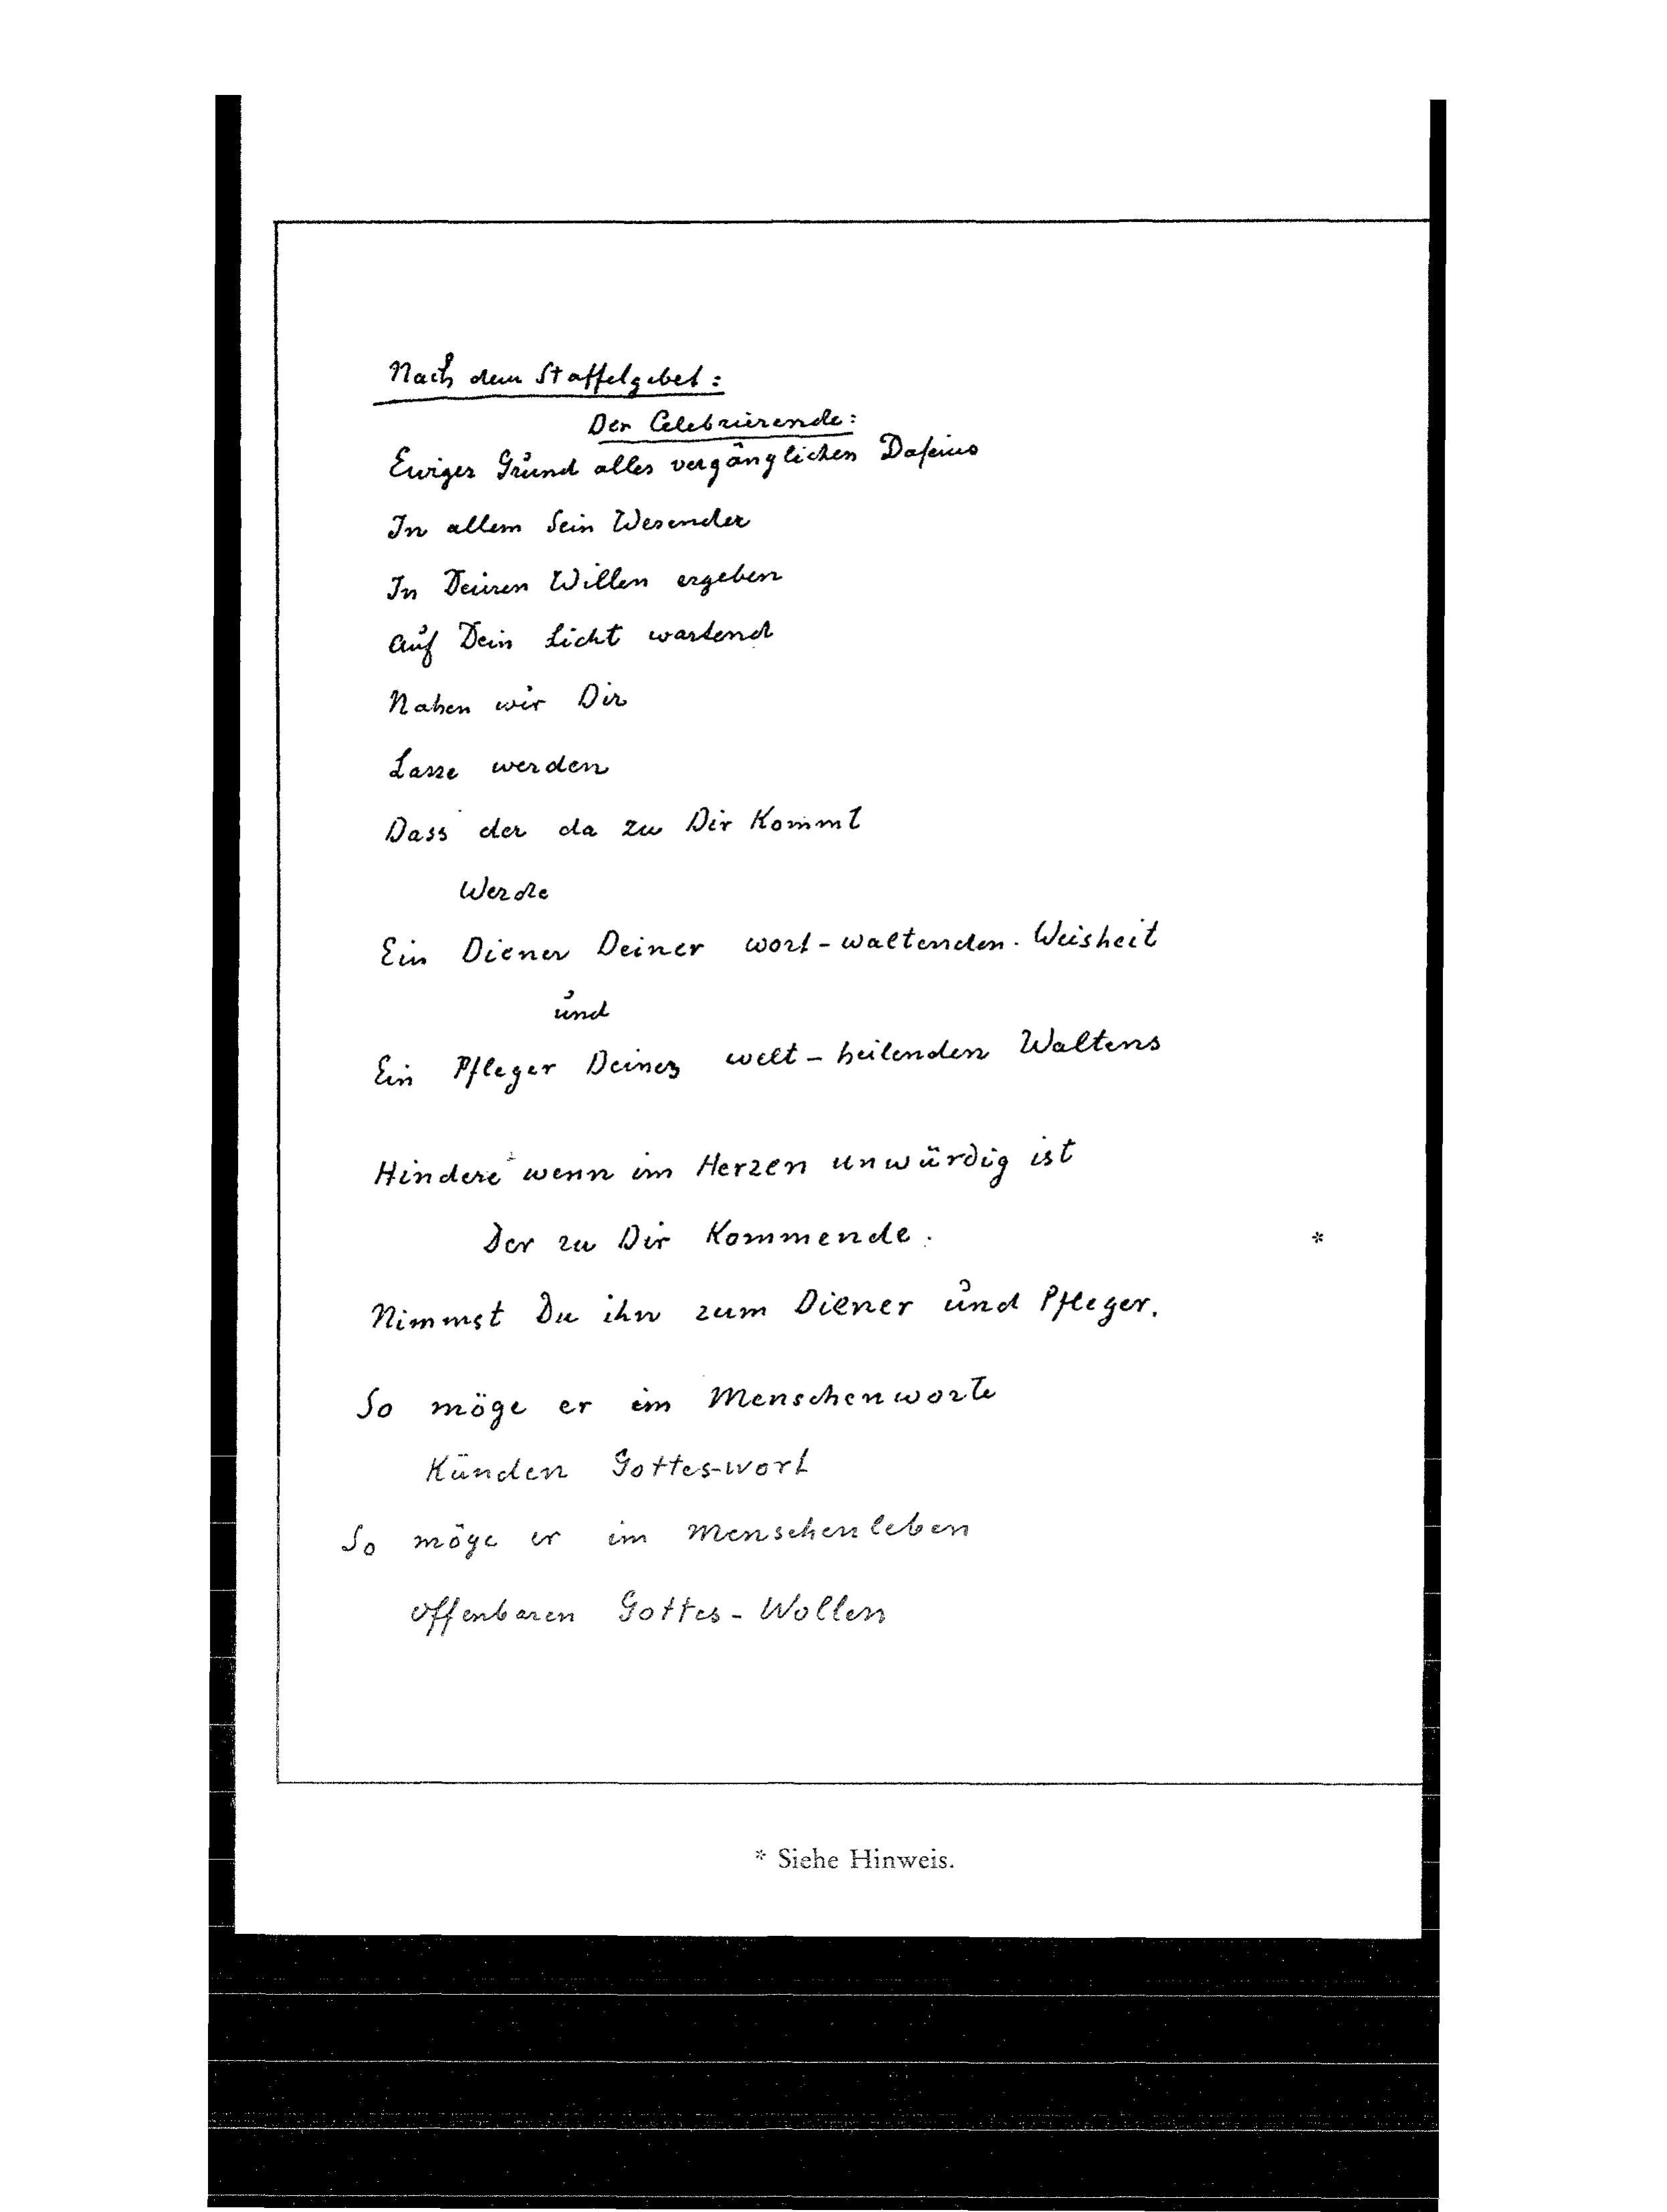 Nach dem Staffelgebet:
Der Celebrierende:
Ewiger Grund alles vergänglichen Daseins
In allem Sein Wesender
In Deinen Willen ergeben
Auf Dein Licht wartend
Nahen wir Dir
Lasse werden
Dass der da zu Dir Kommt
Werde
Ein Diener Deiner wort-waltenden Weisheit
und
Ein Pfleger Deines welt-heilenden Waltens
Hindere wenn im Herzen unwürdig ist
Der zu Dir Kommende.
*
Nimmst Du ihn zum Diener und Pfleger.
So möge er im Menschenworte
Künden Gottes-wort
So möge er im Menschenleben
offenbaren Gottes-Wollen
* Siehe Hinweis.